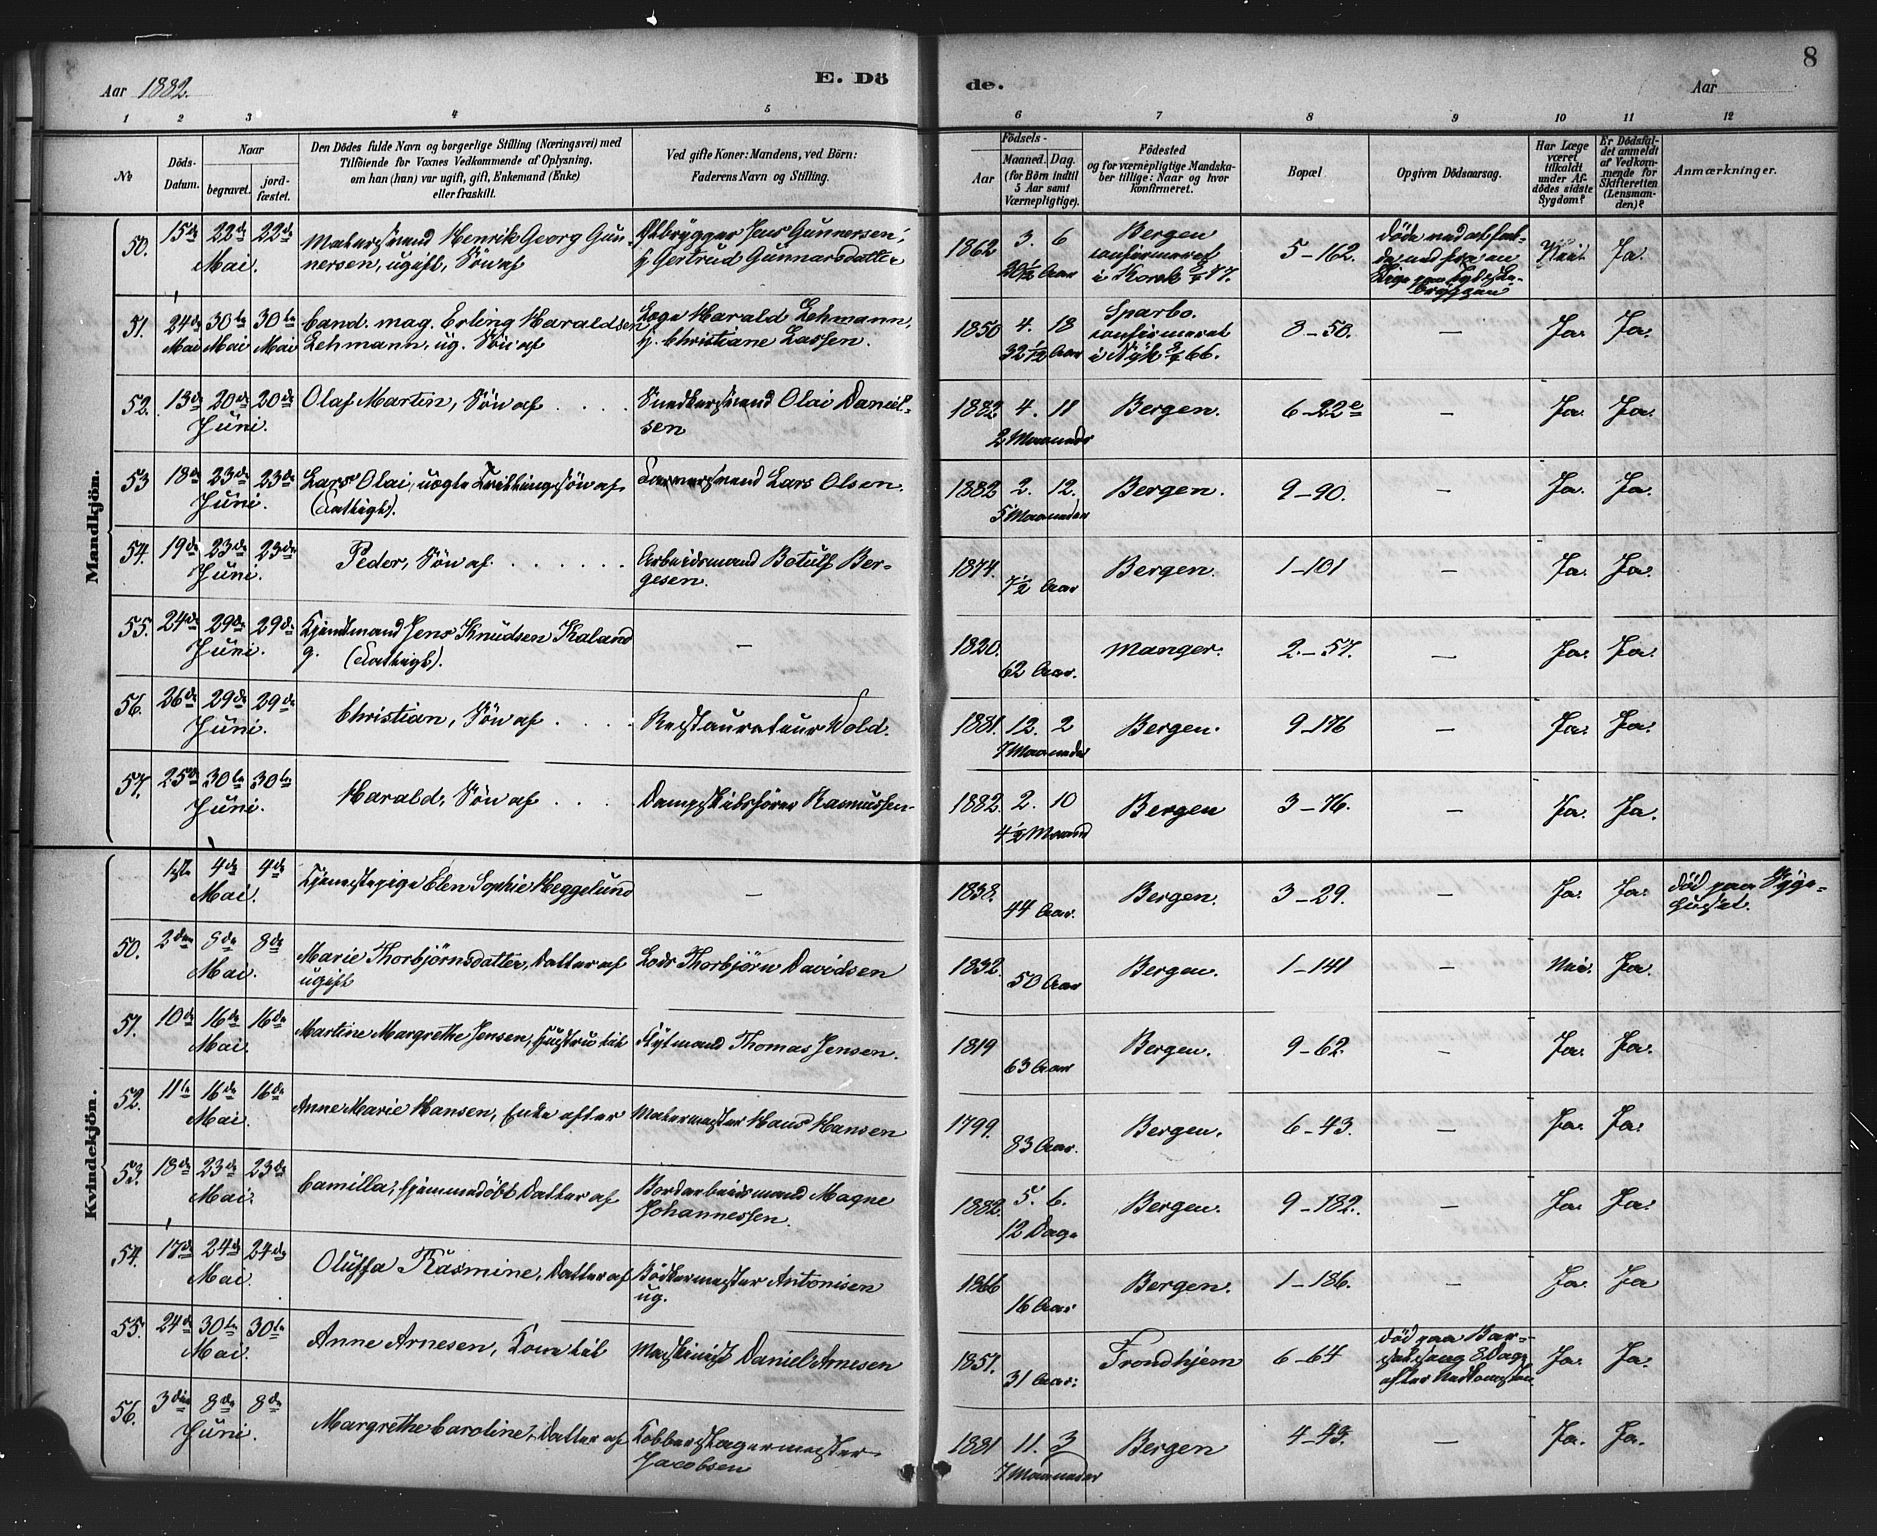 Aar 1882.
E. Dö
de.
Aar
8
1 2 3 4 5
6 7 8 9 10 11 12
No
Döds-
Datum.
Naar
begravet.
jord-
fæstet.
Den Dödes fulde Navn og borgerlige Stilling (Næringsvei) med
Tilföiende for Voxnes Vedkommende af Oplysning,
om han (hun) var ugift, gift, Enkemand (Enke)
eller fraskilt.
Ved gifte Koner: Mandens, ved Börn:
Faderens Navn og Stilling.
Aar
Födsels-
Maaned. Dag.
(for Börn indtil
5 Aar samt
Værnepligtige).
Födested
og for værnepligtige Mandska-
ber tillige: Naar og hvor
konfirmeret.
Bopæl
Opgiven Dödsaarsag.
Har Læge
været
tilkaldt
under Af-
dödes sidste
Sygdom?
Er Dödsfal-
det anmeldt
af Vedkom-
mende for
Skifteretten
(Lensman-
den)?
Anmærkninger.
Mandkjön.
50. 15de 22de 22de Henrik Georg Gun- Ölbrygger Jens Gunnersen, 1862 3. 6 Bergen 5-162. Ja.
Mai. nersen, ugift, Søn af Gertrud Gunnarsdatter 20½ Aar confirmeret
i Korsk
51. 24de 30te 30te Cand. mag. Erling Haraldsen Læge Harald Lehmann, 1850 4. 18 Sparbo. 8-50. — Ja. Ja.
Mai Mai Mai Lehmann, ug. Søn af Christiane Lassen. 32½ Aar confirmeret
i Nyk 66.
52. 13de 20de 20de Olaf Martin, Søn af Snedkersvend Olai Daniel- 1882 4. 11 Bergen. 6-22c — Ja. Ja.
Juni. sen 2 Maaneder
53 18de 23de 23de Lars Olai, uægte Søn af Lars Olsen. 1882 2. 12. Bergen. 9-90. — Ja. Ja.
Juni. (Fattigl). 5 Maaneder
54. 19de 23de 23de Peder, Søn af Arbeidsmand Botulf Ber- 1874. Bergen. 1-101 — Ja. Ja.
Juni. gesen. 7½ Aar
55. 24de 29de 29de Jens Knudsen Kaland — 1820. Manger. 2-57. — Ja. Ja.
Juni. g. (Fattigl). 62 Aar.
56. 26de 29de 29de Christian, Søn af Restaurateur Wold. 1881. 12. 2 Bergen. 9-176 — Ja. Ja.
Juni. 7 Maaneder
57. 25de 30te 30te Harald, Søn af Dampskibsfører Rasmussen. 1882. 2. 10 Bergen 3-76. — Ja. Ja.
Juni. 4½ Maaned
Kvindekjön.
1ste 4de 4de Tjenestepige Elen Sophie Heggelund — 1838. Bergen. 3-29. Ja. Ja. død paa Syge-
Mai. 44 Aar. huset.
50. 2den 8de 8de Marie Thorbjørnsdatter, Datter af Lods Thorbjørn Davidsen 1832. Bergen. 1-141 — Nei. Ja.
Mai. ugift 50 Aar
51. 10de 16de 16de Martine Margrethe Jensen, Hustru til Flytmand Thomas Jensen. 1819 Bergen. 9-62. — Ja. Ja.
Mai. 63 Aar
52. 11te 16de 16de Anne Marie Hansen, Enke efter Malermester Hans Hansen 1799. Bergen. 6-43. — Ja. Ja.
Mai. 83 Aar.
53. 18de 23de 23de Camilla, hjemmedøbt Datter af Bordarbeidsmand Magne 1882. 5. 6. Bergen. 9-182. — Ja. Ja.
Mai. Johannessen. 12 Dage
54. 17de 24de 24de Oluffa Rasmine, Datter af Bødkermester Antonisen 1866 Bergen. 1-186. — Ja. Ja
Mai. ug. 16 Aar.
55. 24de 30te 30te Anne Arnesen, Kone til Maskinist Daniel Arnesen 1851. Trondhjem 6-64 død paa Bar- Ja. Ja.
Mai. 31 Aar. selseng 8 Dage
efter Nedkomsten.
56. 3die 8de 8de Margrethe Caroline, Datter af Kobberslagermester 1881 11. 3 Bergen 4-43. — Ja. Ja.
Juni. Jacobsen 7 Maaneder